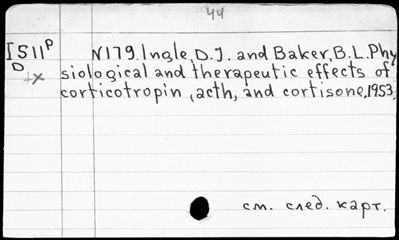 44
IS11P N179. Ingle, D.J. and Baker, B.L. Phy
D siological and therapeutic effects of
+x corticotropin, acth, and cortisone, 1953.
см. след. карт.